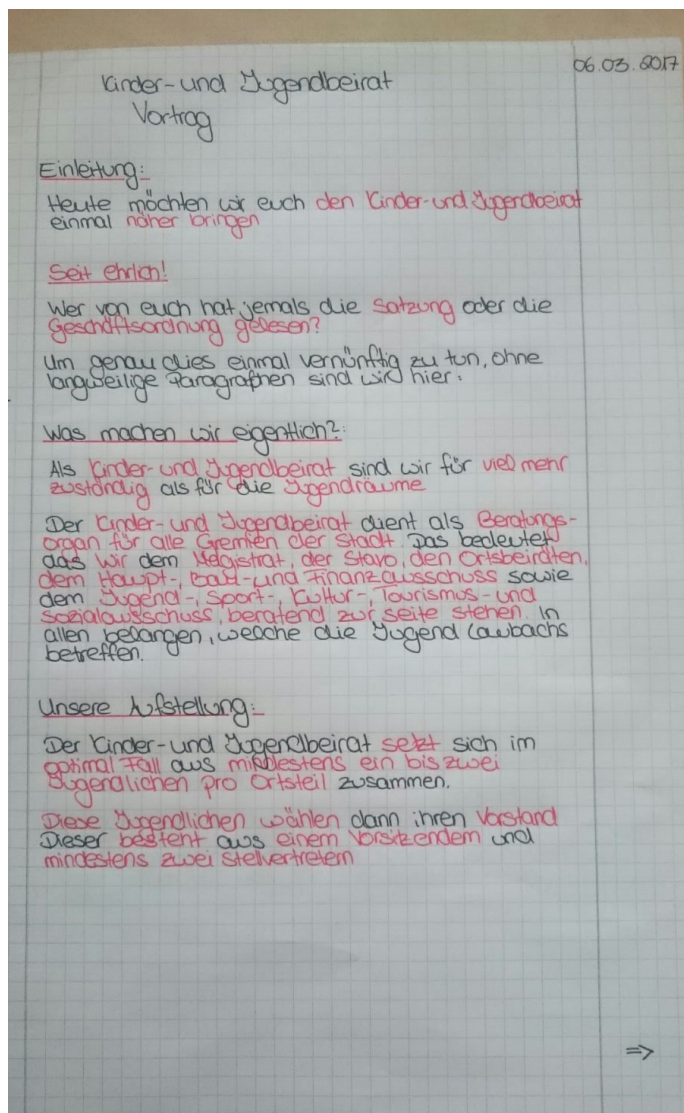 06.03.2017
Kinder- und Jugendbeirat
Vortrag
Einleitung:
Heute möchten wir euch den Kinder- und Jugendbeirat
einmal näher bringen
Seit ehrlich!
Wer von euch hat jemals die Satzung oder die
Geschäftsordnung gelesen?
Um genau dies einmal vernünftig zu tun, ohne
langweilige Paragraphen sind wir hier.
Was machen wir eigentlich?:
Als Kinder- und Jugendbeirat sind wir für viel mehr
zuständig als für die Jugendräume
Der Kinder- und Jugendbeirat dient als Beratungs-
organ für alle Gremien der Stadt. Das bedeutet
das wir dem Magistrat, der Stavo, den Ortsbeiräten,
dem Haupt-, Bau- und Finanzausschuss sowie
dem Jugend-, Sport-, Kultur-, Tourismus- und
Sozialausschuss, beratend zur seite stehen. In
allen belangen, welche die Jugend Laubachs
betreffen.
Unsere Aufstellung:
Der Kinder- und Jugendbeirat setzt sich im
optimal Fall aus mindestens ein bis zwei
Jugendlichen pro Ortsteil zusammen.
Diese Jugendlichen wählen dann ihren Vorstand
Dieser besteht aus einem Vorsitzendem und
mindestens zwei Stellvertretern
=>